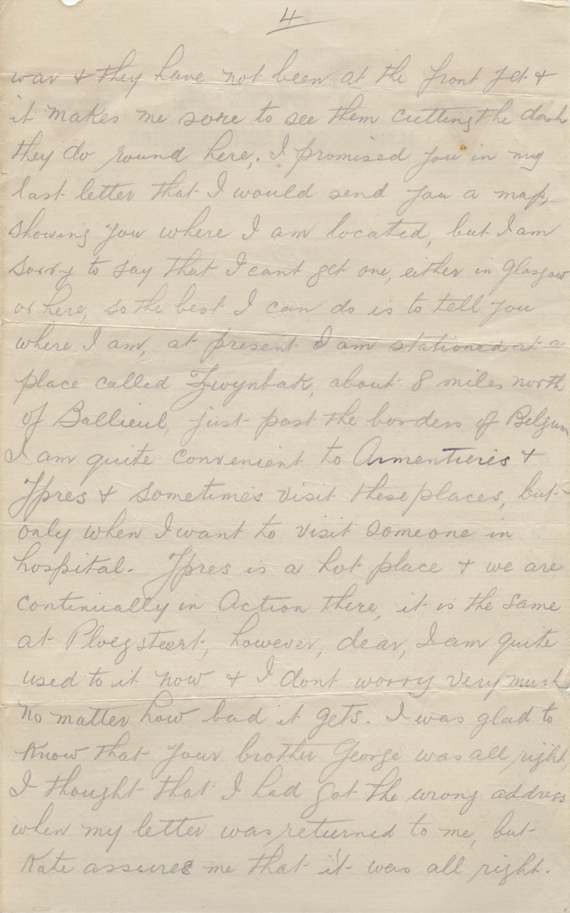 4
war & they have not been at the front yet &
it makes me sore to see them cutting the dash
they do round here. I promised you in my
last letter that I would send you a map,
showing you where I am located, but I am
sorry to say that I cant get one, either in Glasgow
or here, so the best I can do is to tell you
where I am, at present I am stationed at a
place called Zwynbak, about 8 miles north
of Ballieul, just past the borders of Belgium
I am quite convenient to Armentieris &
Ypres & sometimes visit these places, but
only when I want to visit someone in
hospital. Ypres is a hot place & we are
continually in Action there, it is the same
at Ploegsteert, however, dear, I am quite
used to it now & I dont worry very much
no matter how bad it gets. I was glad to
know that your brother George was all right,
I thought that I had got the wrong address
when my letter was returned to me, but
Kate assures me that it was all right.